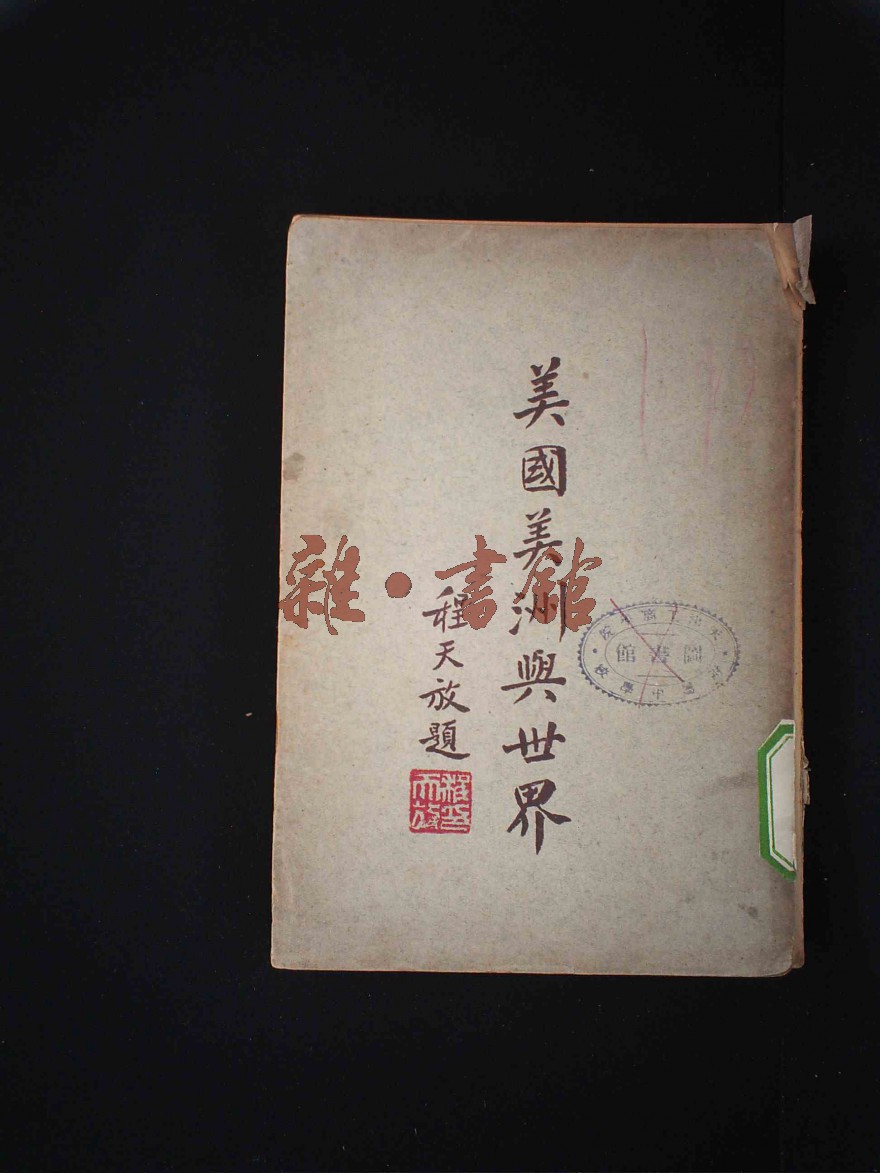 美國美洲與世界
程天放題
程天放印
雜·書館
圖書館